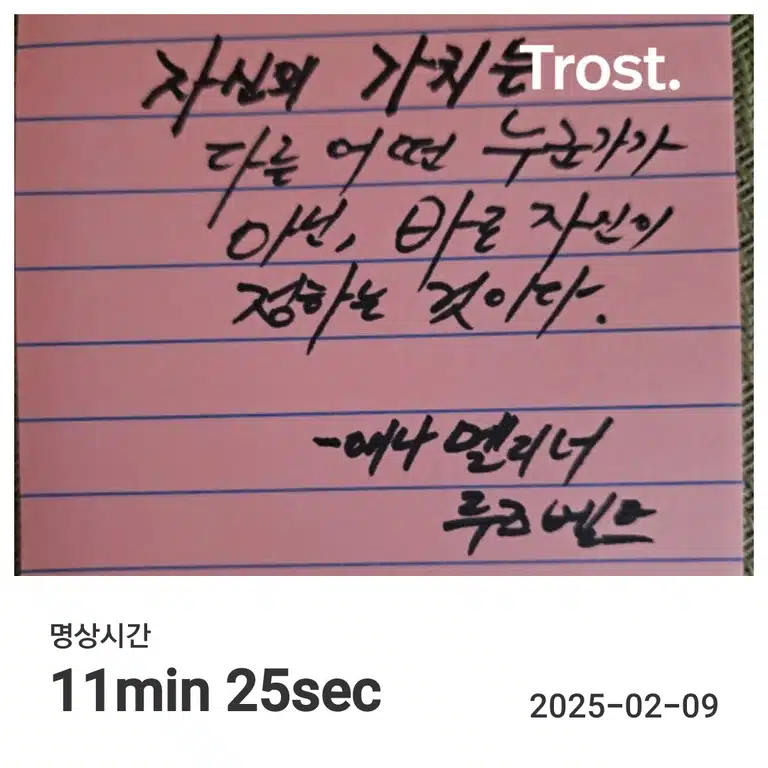 자신의 가치는
Trost.
다른 어떤 누군가가
아닌, 바로 자신이
정하는 것이다.
-애나 멜리너
루즈벨트
명상시간
11min 25sec
2025-02-09